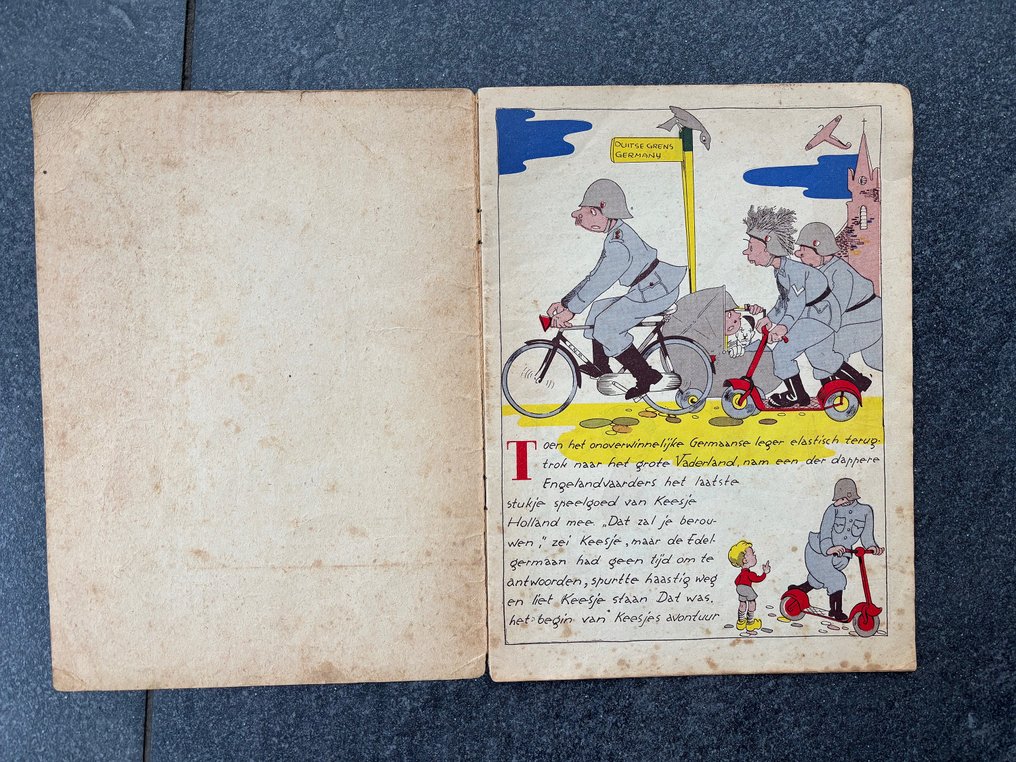 DUITSE GRENS
GERMANY
Toen het onoverwinnelijke Germaanse leger elastisch terug-
trok naar het grote Vaderland, nam een der dappere
Engelandvaarders het laatste
stukje speelgoed van Keesje
Holland mee. „Dat zal je berou-
wen," zei Keesje, maar de Edel-
germaan had geen tijd om te
antwoorden, spurtte haastig weg
en liet Keesje staan Dat was,
het begin van Keesjes avontuur